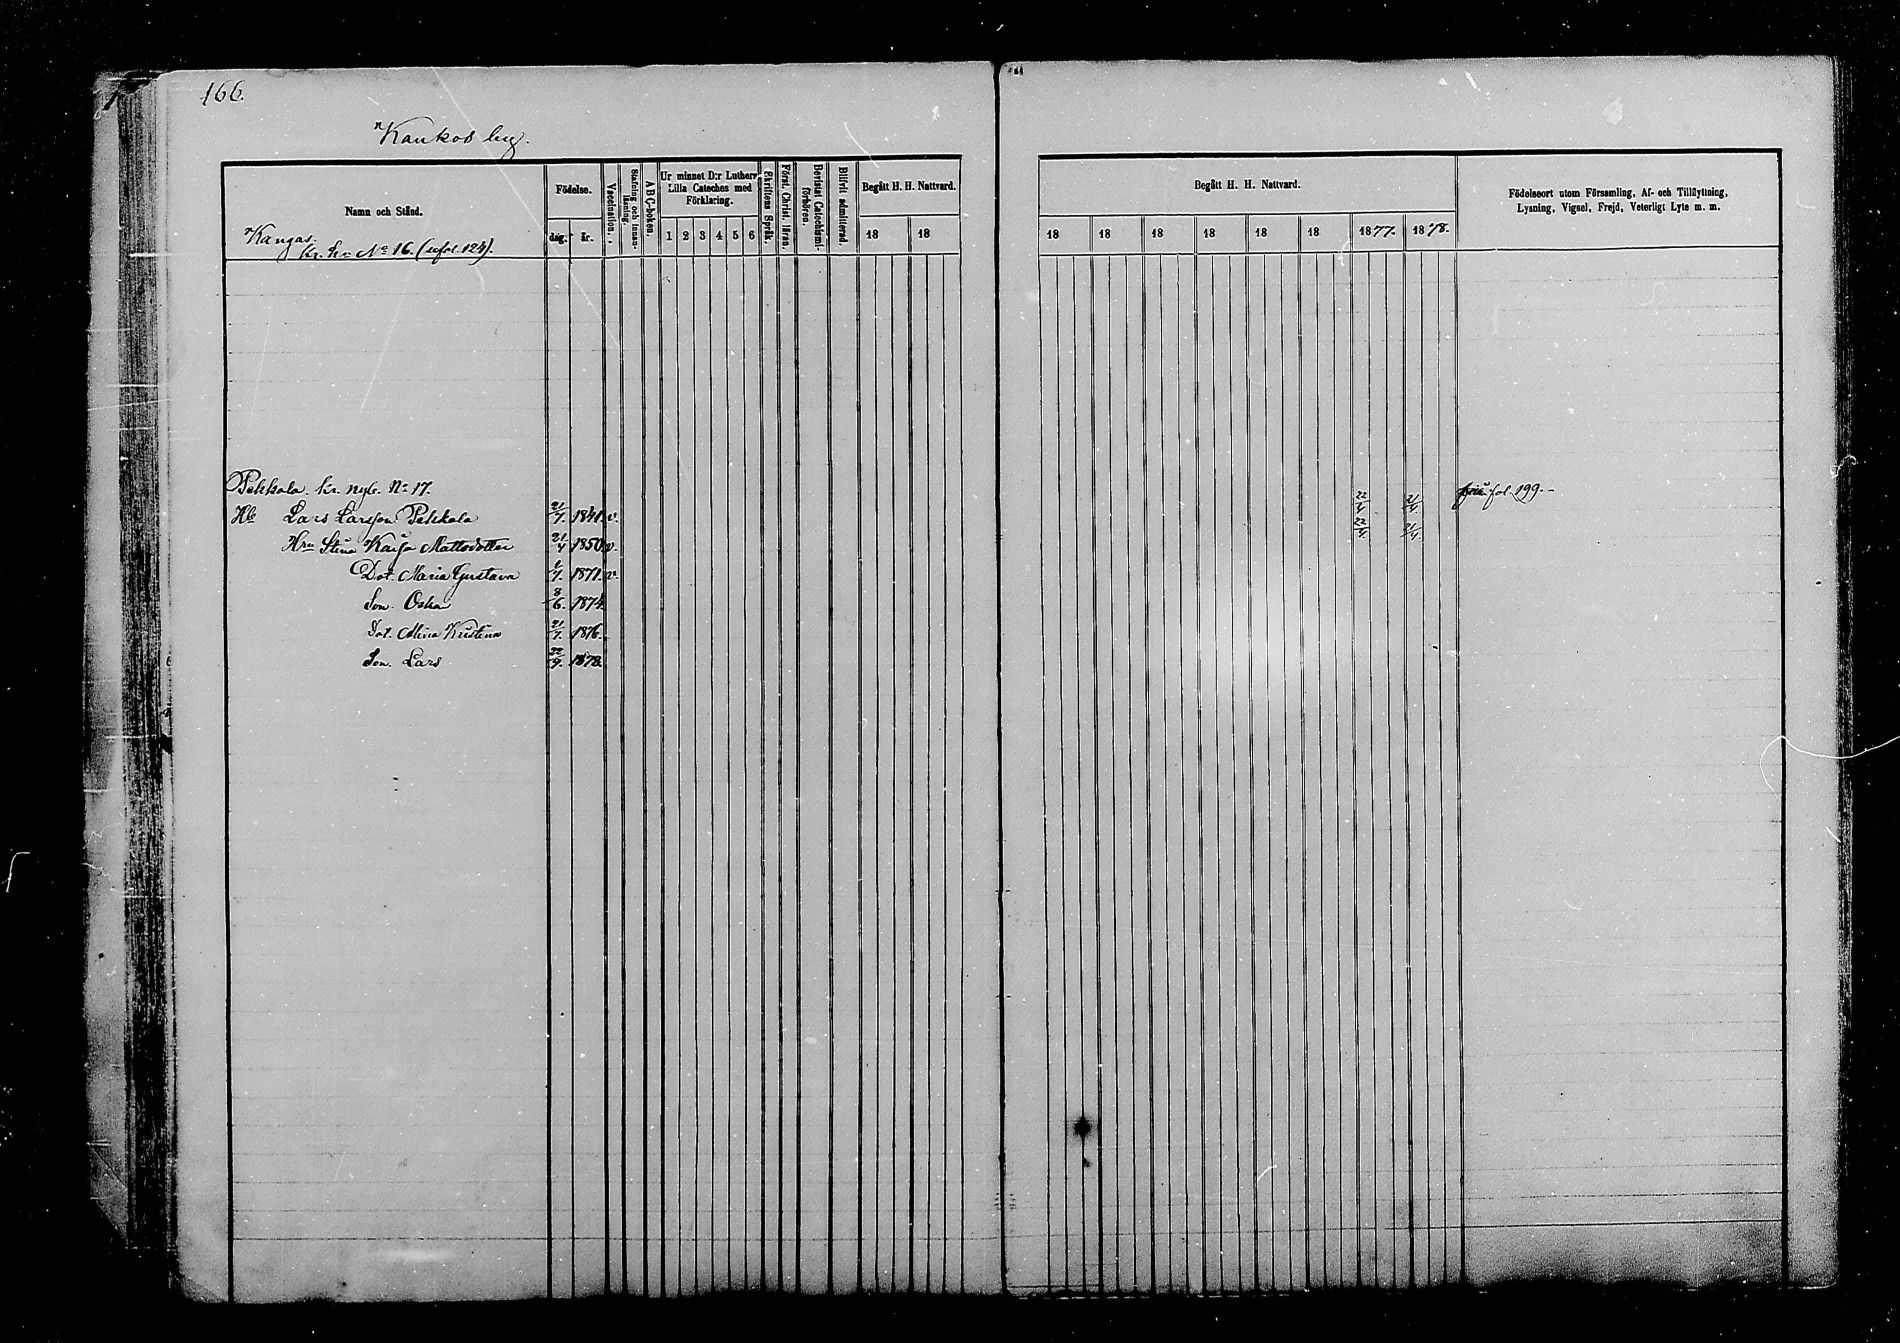 166.
Kaukos by.
Namn och Stånd.
Födelse.
dag. år.
Vaccination.
Stafning och innanläsning.
A B C-boken.
Ur minnet D:r Luthers Lilla Cateches med Förklaring.
1 2 3 4 5 6
Skriftens Språk.
Först. Christ. läran.
Bevistat Catechismi-förhören.
Blifvit admitterad.
Begått H. H. Nattvard.
18 18
Begått H. H. Nattvard.
18 18 18 18 18 18 1877. 1878.
Födelseort utom Församling, Af- och Tillflyttning,
Lysning, Vigsel, Frejd, Veterligt Lyte m. m.
Kangas.
Kr. hn No 16. (se fol. 124).
Pekkala. Kr. nyb. No 17.
fol. 199.
Hb Lars Larsson Pekkala 21/7. 1841. v. 22/4 21/4.
Hru Stina Kajsa Mattsdotter 21/4 1850. v. 22/4. 21/4.
Dot. Maria Gustava 1/7. 1871. v.
Son. Oskar 8/6. 1874.
Dot. Mina Kristina 21/7. 1876.
Son. Lars 22/9. 1878.